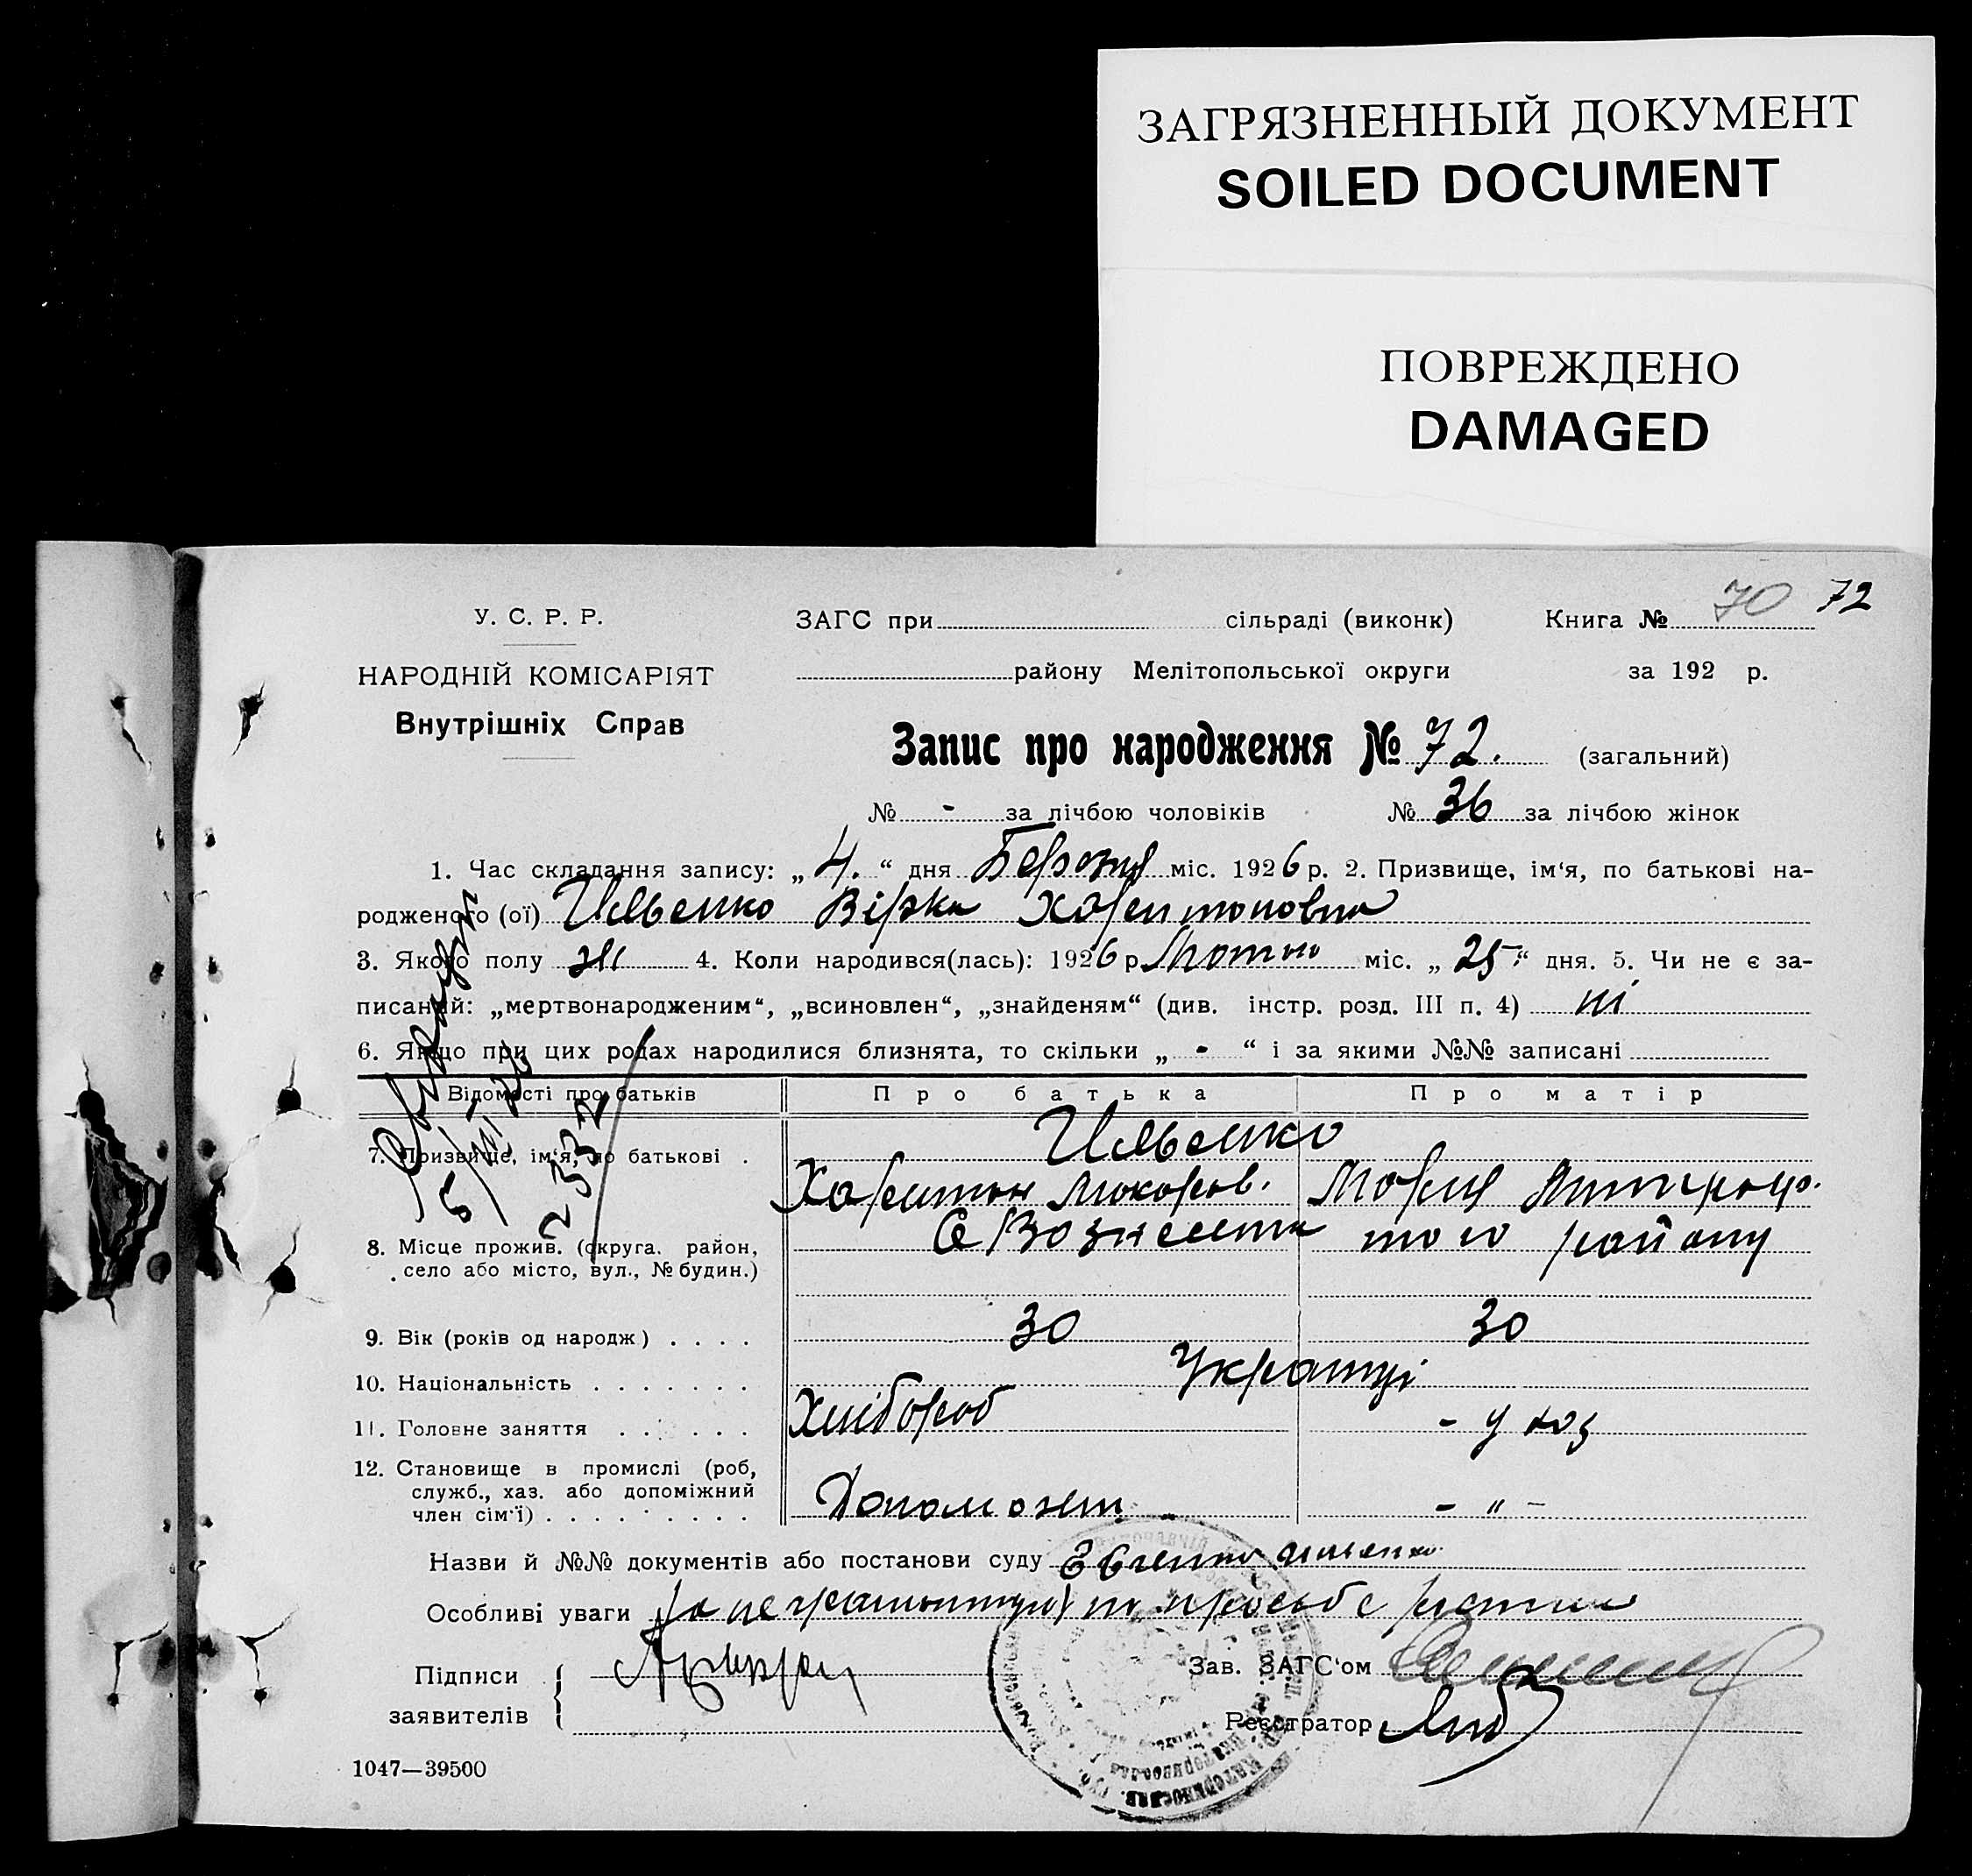 ЗАГРЯЗНЕННЫЙ ДОКУМЕНТ
SOILED DOCUMENT
ПОВРЕЖДЕНО
DAMAGED
70 72
У. С. Р. Р. ЗАГС при сільраді (виконк) Книга №
НАРОДНІЙ КОМІСАРІЯТ району Мелітопольської округи за 192 р.
Внутрішніх Справ
Запис про народження № 72. (загальний)
№ - за лічбою чоловіків № 36 за лічбою жінок
1. Час складання запису: „ 4. “ дня Березня міс. 1926 р. 2. Призвище, ім'я, по батькові на-
родженого (ої) Ильенко Вірка Харитоновна
3. Якого полу ж 4. Коли народився(лась): 1926 р. Лютого міс. „ 25 “ дня. 5. Чи не є за-
писаний: „мертвонародженим“, „всиновлен“, „знайденям“ (див. інстр. розд. III п. 4) ні
6. Якщо при цих родах народилися близнята, то скільки „ - “ і за якими №№ записані
Відомості про батьків Про батька Про матір
7. Призвище, ім'я, по батькові . Ильенко
Харитон Макаров. Мария
8. Місце прожив. (округа. район, с Вознесенка того району
село або місто, вул., № будин.)
9. Вік (років од народж) . . . . 30 30
10. Національність . . . . . . . Українці
11. Головне заняття . . . . . . Хлібороб
12. Становище в промислі (роб,
служб., хаз. або допоміжний
член сім'ї) . . . . . . . . . - " -
Назви й №№ документів або постанови суду
Особливі уваги за неграмотную по просьбе
Підписи Зав. ЗАГС'ом
заявителів Реєстратор
1047—39500
2332